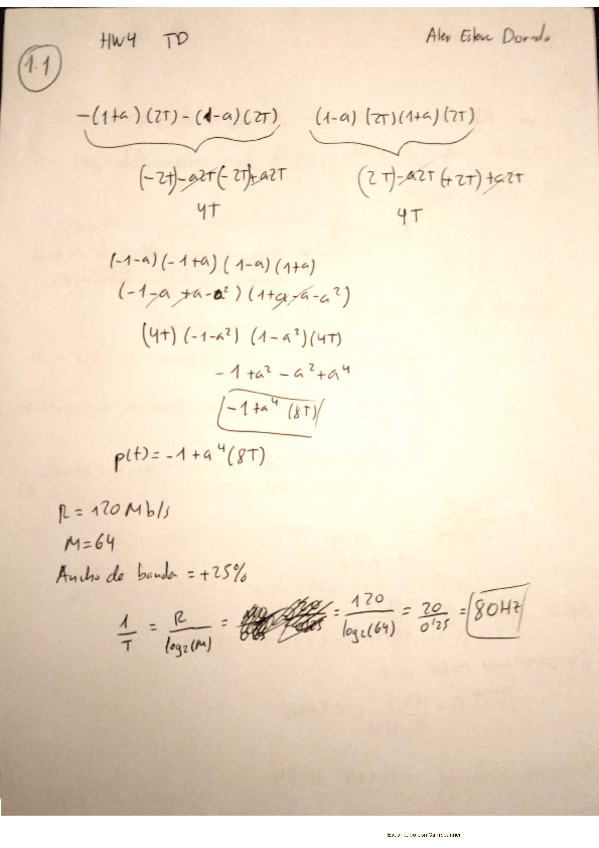 HW4 TD
Alex Esteve Dorado
1.1
-(1+a)(2T)-(1-a)(2T)
(1-a)(2T)(1+a)(2T)
(-2T)-a2T(-2T)+a2T
(2T)-a2T(+2T)+a2T
4T
4T
(-1-a)(-1+a)(1-a)(1+a)
(-1-a+a-a²)(1+a-a-a²)
(4T)(-1-a²)(1-a²)(4T)
-1+a²-a²+a⁴
-1+a⁴(8T)
p(t)=-1+a⁴(8T)
R=120Mb/s
M=64
Ancho de banda=+25%
1/T = R/log₂(M) = = 120/log₂(64) = 20/0'25 = 80Hz